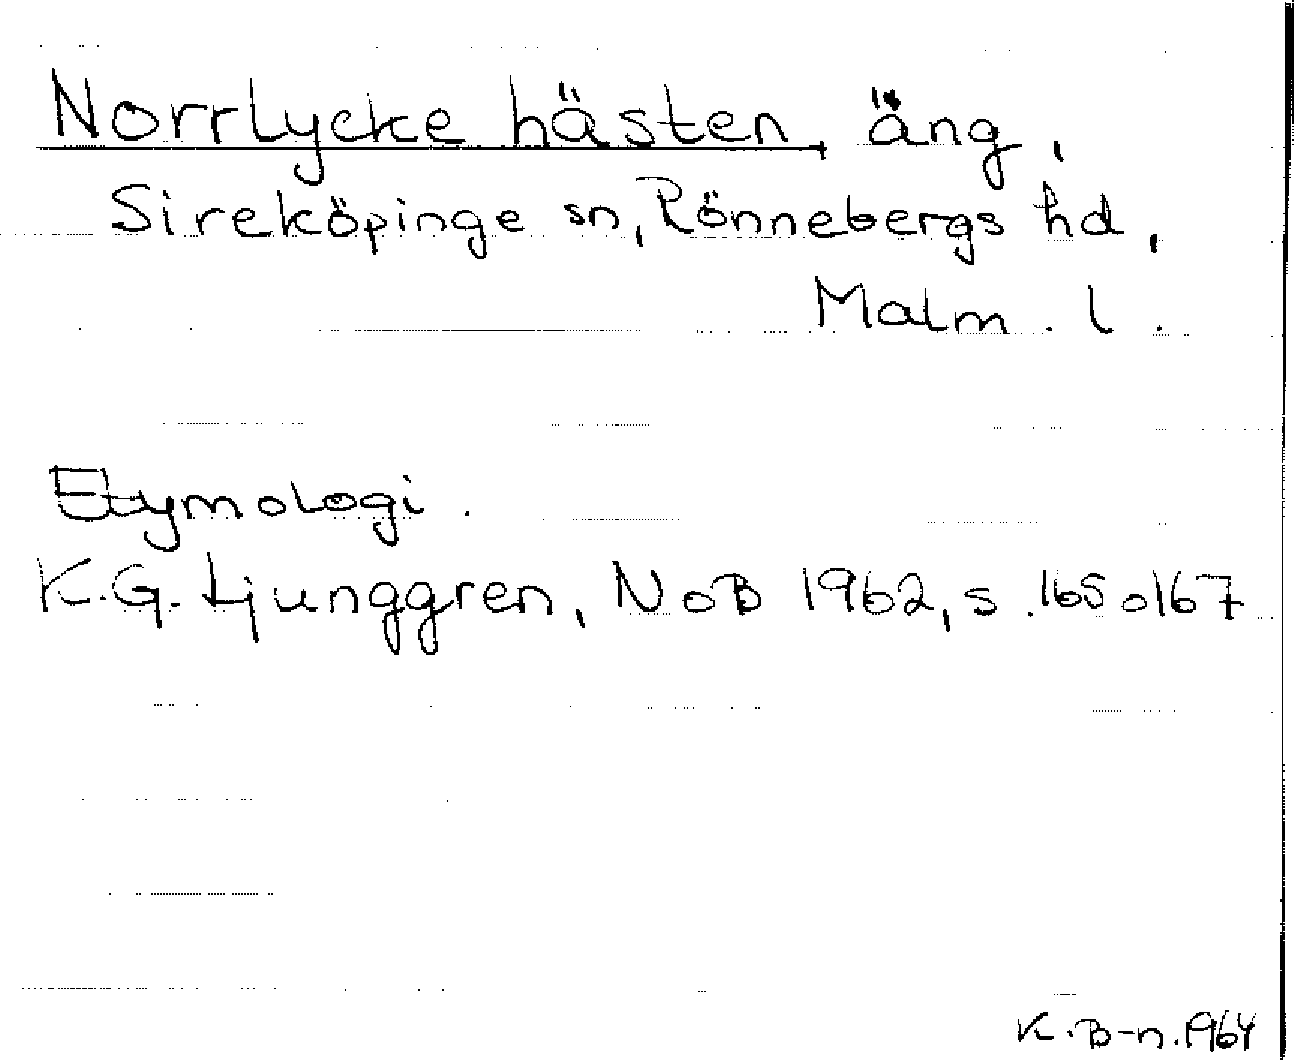 Norrlycke hästen, äng,
Sireköpinge sn, Rönnebergs hd,
Malm. l.
Etymologi.
K.G. Ljunggren, NoB 1962, s. 165 o 167
K. B-n. 1964